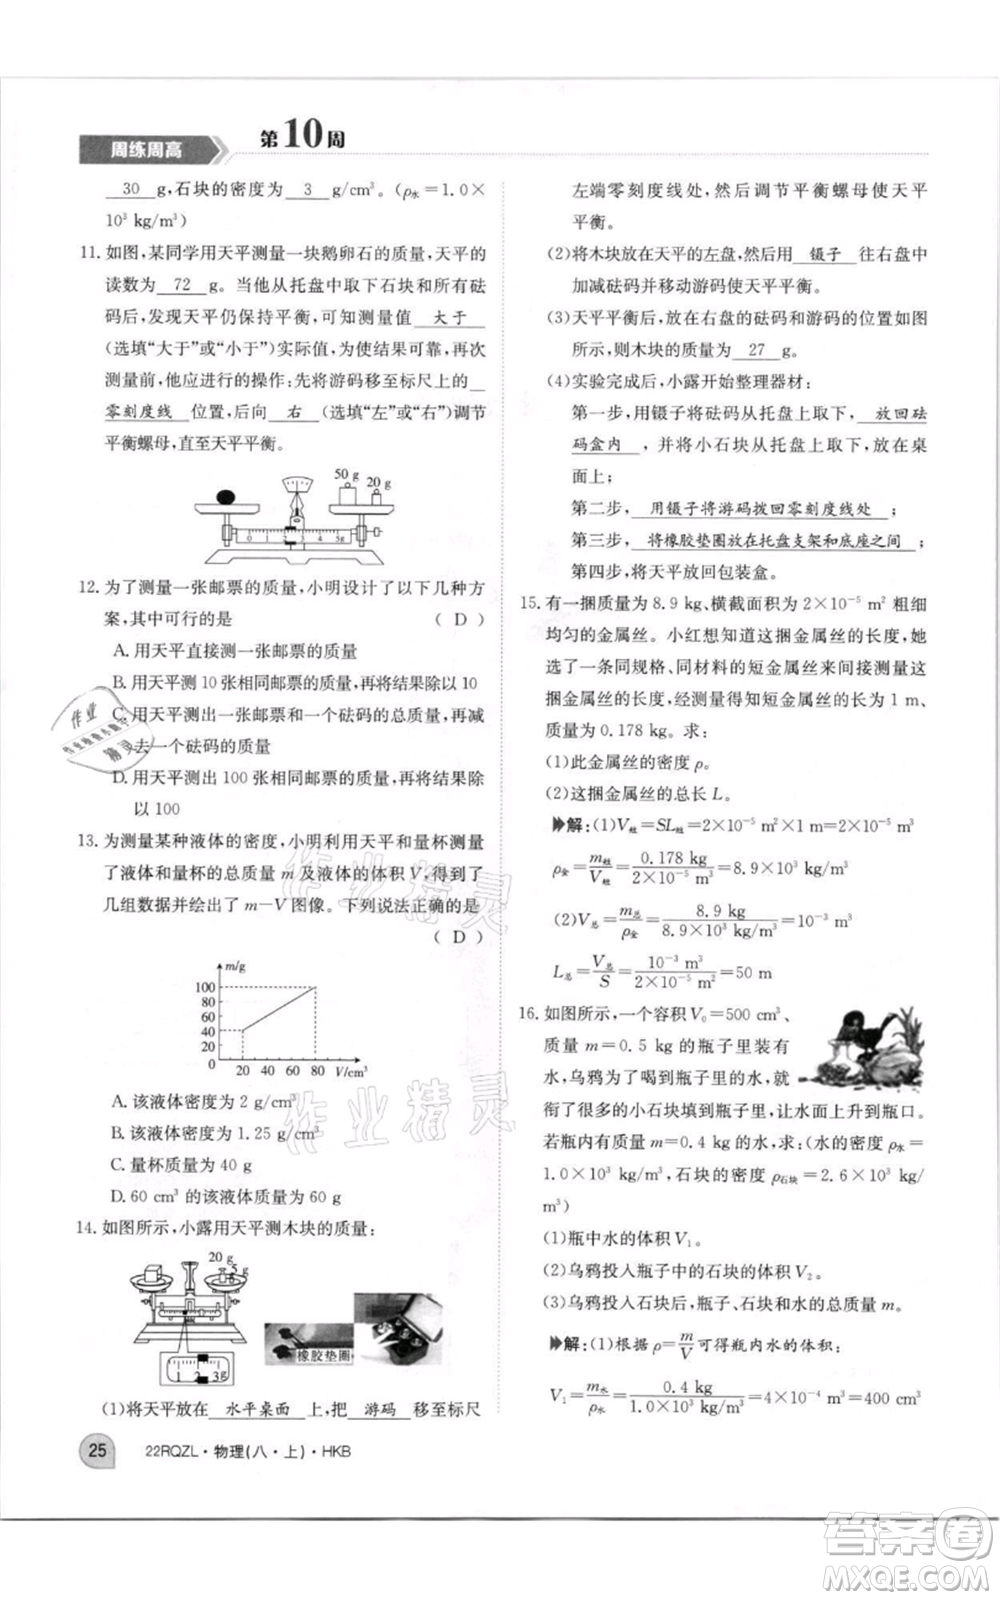 周练周高
第10周
30 g,石块的密度为 3 g/cm³。(ρ水=1.0×
10³ kg/m³)
11. 如图,某同学用天平测量一块鹅卵石的质量,天平的
读数为 72 g。当他从托盘中取下石块和所有砝
码后,发现天平仍保持平衡,可知测量值 大于
(选填“大于”或“小于”)实际值,为使结果可靠,再次
测量前,他应进行的操作:先将游码移至标尺上的
零刻度线 位置,后向 右 (选填“左”或“右”)调节
平衡螺母,直至天平平衡。
50 g 20 g
0 1 2 3 4 5g
12. 为了测量一张邮票的质量,小明设计了以下几种方
案,其中可行的是 ( D )
A. 用天平直接测一张邮票的质量
B. 用天平测 10 张相同邮票的质量,再将结果除以 10
C. 用天平测出一张邮票和一个砝码的总质量,再
减去一个砝码的质量
D. 用天平测出 100 张相同邮票的质量,再将结果除
以 100
13. 为测量某种液体的密度,小明利用天平和量杯测量
了液体和量杯的总质量 m 及液体的体积 V,得到了
几组数据并绘出了 m—V 图像。下列说法正确的是
( D )
m/g
100
80
60
40
20
0 20 40 60 80 V/cm³
A. 该液体密度为 2 g/cm³
B. 该液体密度为 1.25 g/cm³
C. 量杯质量为 40 g
D. 60 cm³ 的该液体质量为 60 g
14. 如图所示,小露用天平测木块的质量:
20 g
5 g
0 1 2 3g
橡胶垫圈
(1)将天平放在 水平桌面 上,把 游码 移至标尺
左端零刻度线处,然后调节平衡螺母使天平
平衡。
(2)将木块放在天平的左盘,然后用 镊子 往右盘中
加减砝码并移动游码使天平平衡。
(3)天平平衡后,放在右盘的砝码和游码的位置如图
所示,则木块的质量为 27 g。
(4)实验完成后,小露开始整理器材:
第一步,用镊子将砝码从托盘上取下, 放回砝
码盒内 ,并将小石块从托盘上取下,放回桌
面上;
第二步, 用镊子将游码拨回零刻度线处 ;
第三步,将橡胶垫圈放在托盘支架和底座之间;
第四步,将天平放回包装盒。
15. 有一捆质量为 8.9 kg、横截面积为 2×10⁻⁵ m² 粗细
均匀的金属丝。小红想知道这捆金属丝的长度,她
选了一条同规格、同材料的短金属丝来间接测量这
捆金属丝的长度,经测量得知短金属丝的长度为 1 m,
质量为 0.178 kg。求:
(1)此金属丝的密度 ρ。
(2)这捆金属丝的总长 L。
解:(1)V短=SL短=2×10⁻⁵ m²×1 m=2×10⁻⁵ m³
ρ金=m短/V短=0.178 kg/2×10⁻⁵ m³=8.9×10³ kg/m³
(2)V总=m总/ρ金=8.9 kg/8.9×10³ kg/m³=10⁻³ m³
L总=V总/S=10⁻³ m³/2×10⁻⁵ m²=50 m
16. 如图所示,一个容积 V₀=500 cm³、
质量 m=0.5 kg 的瓶子里装有
水,乌鸦为了喝到瓶子里的水,
衔了很多的小石块填到瓶子里,让水上升到瓶口。
若瓶内有质量 m=0.4 kg 的水,求:(水的密度 ρ水=
1.0×10³ kg/m³,石块的密度 ρ石块=2.6×10³
kg/m³)
(1)瓶中水的体积 V₁。
(2)乌鸦投入瓶子中的石块的体积 V₂。
(3)乌鸦投入石块后,瓶子、石块和水的总质量 m。
解:(1)根据 ρ=m/V可得瓶内水的体积:
V₁=m水/ρ水=0.4 kg/1.0×10³ kg/m³=4×10⁻⁴ m³=400 cm³
25 22RQZL·物理(八·上)·HKB
作业精灵
作业精灵
作业
精灵
答案卷
MXQE.COM